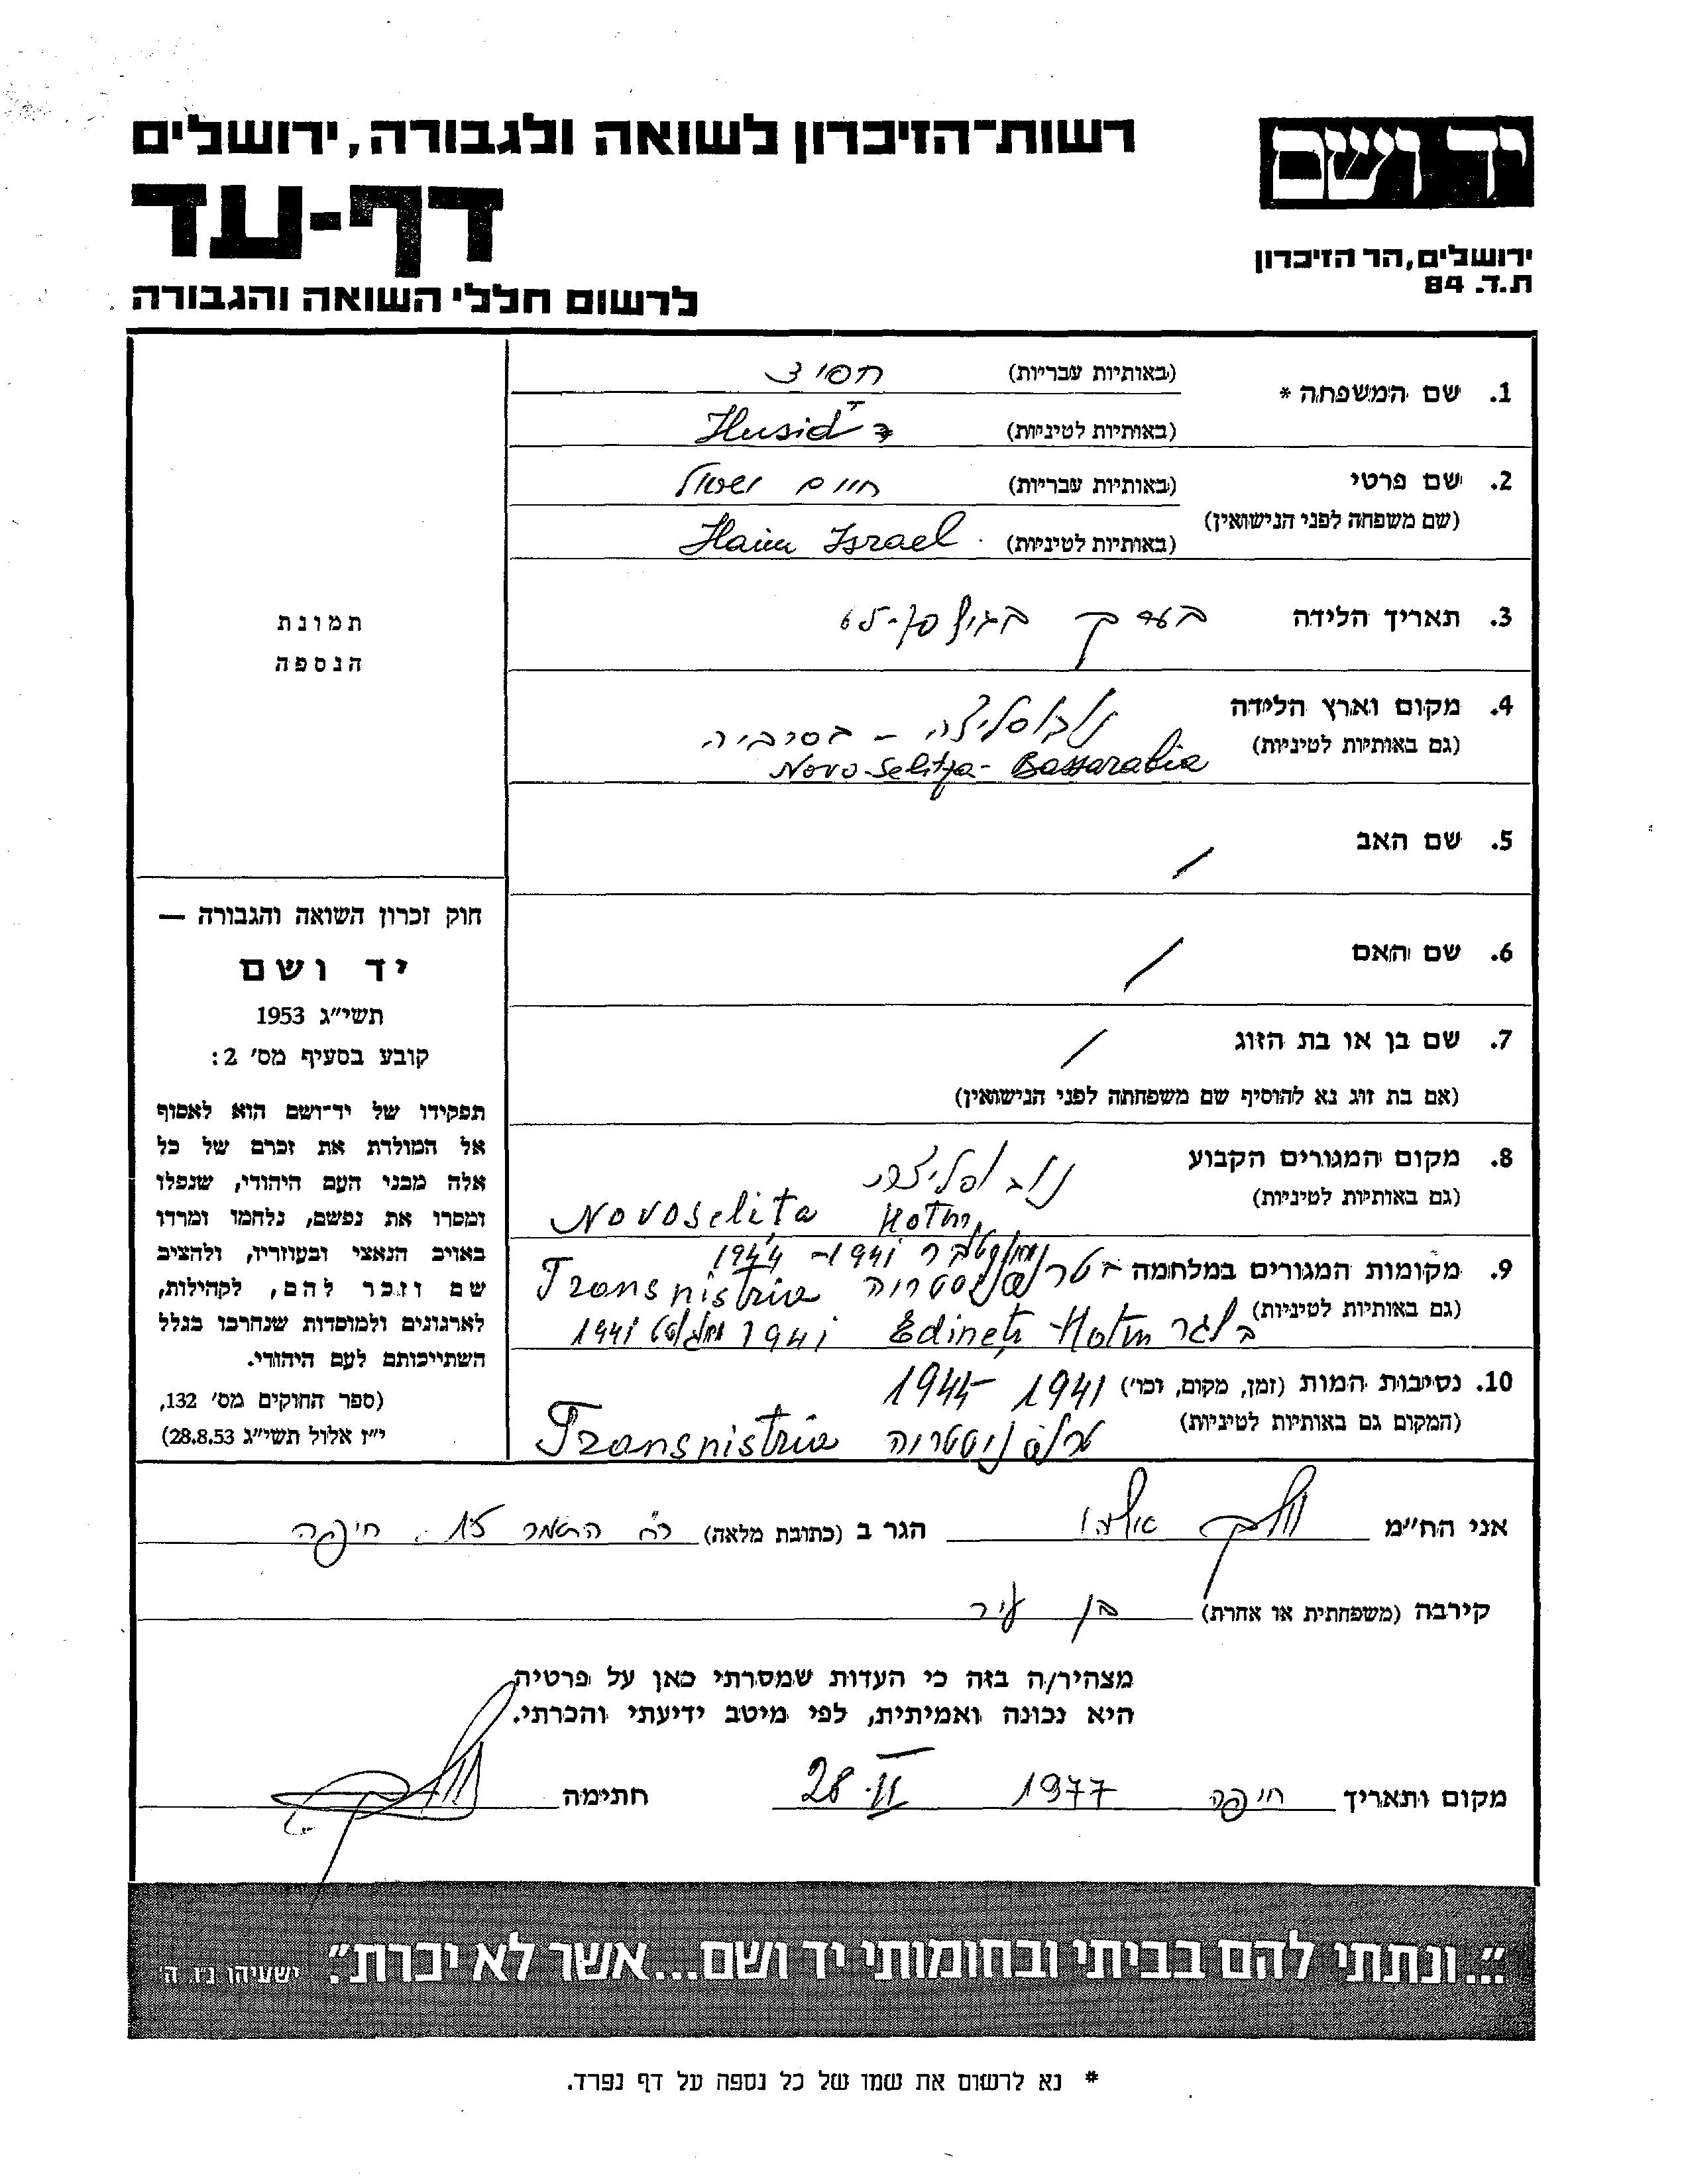 רשות-הזיכרון לשואה ולגבורה, ירושלים
יד ושם
דף-עד
ירושלים, הר הזיכרון
ת.ד. 84
לרשום חללי השואה והגבורה
1. שם המשפחה * (באותיות עבריות) חסיד
(באותיות לטיניות) Husid
2. שם פרטי (באותיות עבריות) חיים ישראל
(שם משפחה לפני הנישואין)
(באותיות לטיניות) Haim Israel
3. תאריך הלידה בערך בגיל
4. מקום וארץ הלידה נובוסליצה – בסרביה
(גם באותיות לטיניות) Novo-Selitza - Bassarabia
5. שם האב /
6. שם האם /
7. שם בן או בת הזוג /
(אם בת זוג נא להוסיף שם משפחתה לפני הנישואין)
8. מקום המגורים הקבוע
(גם באותיות לטיניות) Novoselita Hotin
1941-1944
9. מקומות המגורים במלחמה בטרנסניסטריה Transnistria
(גם באותיות לטיניות) בלאגר Edinetz - Hotin 1941 1941
10. נסיבות המות (זמן, מקום, וכו') 1941 1944
(המקום גם באותיות לטיניות) טרנסניסטריה Transnistria
תמונת
הנספה
חוק זכרון השואה והגבורה —
יד ושם
תשי"ג 1953
קובע בסעיף מס' 2:
תפקידו של יד-ושם הוא לאסוף
אל המולדת את זכרם של כל
אלה מבני העם היהודי, שנפלו
ומסרו את נפשם, נלחמו ומרדו
באויב הנאצי ובעוזריו, ולהציב
שם וזכר להם, לקהילות,
לארגונים ולמוסדות שנחרבו בגלל
השתייכותם לעם היהודי.
(ספר החוקים מס' 132,
י"ז אלול תשי"ג 28.8.53)
אני הח"מ הגר ב (כתובת מלאה) רח התמר 15. חיפה
קירבה (משפחתית או אחרת) בן עיר
מצהיר/ה בזה כי העדות שמסרתי כאן על פרטיה
היא נכונה ואמיתית, לפי מיטב ידיעתי והכרתי.
מקום ותאריך חיפה 1977 28.II חתימה
"...ונתתי להם בביתי ובחומותי יד ושם...אשר לא יכרת". ישעיהו נ"ו, ה'
* נא לרשום את שמו של כל נספה על דף נפרד.